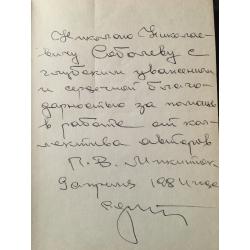 Николаю Николае-
вичу Соболеву с
глубоким уважением
и сердечной благо-
дарностью за помощь
в работе от кол-
лектива авторов
П. В. Микитюк
9 апреля 1984 года